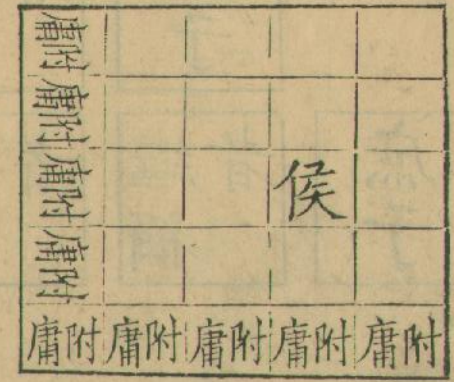 侯
附庸 附庸 附庸 附庸 附庸
附庸
附庸
附庸
附庸